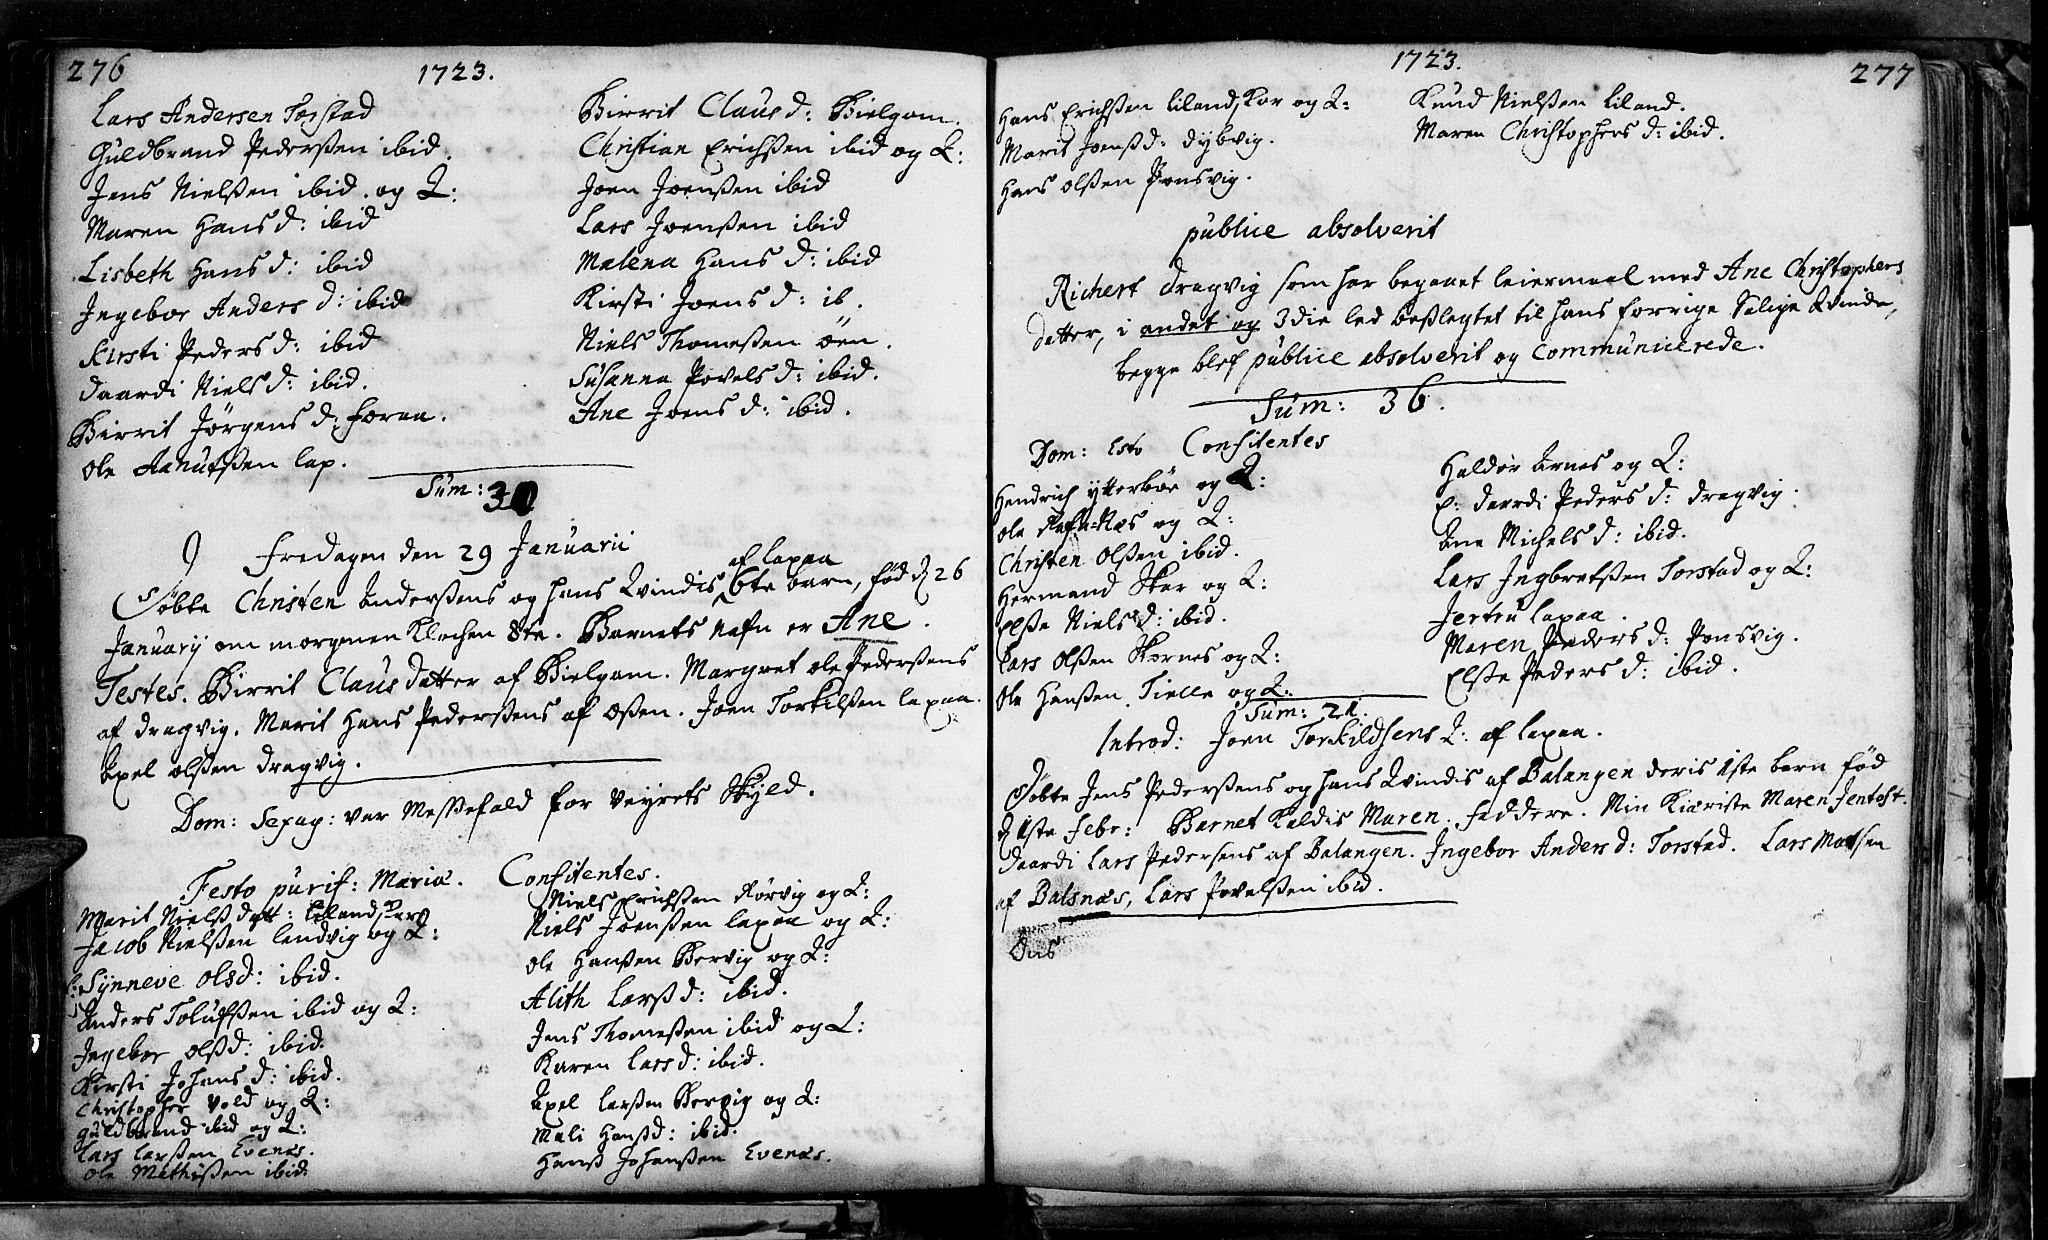 276
1723.
Lars Andersen Torstad
Guldbrand Pederßen ibid.
Jens Nielßen ibid. og Q:
Maren Hans d: ibid
Lisbeth Hans d: ibid
Ingebor Anders d: ibid
Kirsti Peders d: ibid
Daardi Niels d: ibid.
Birrit Jørgens d:
Ole lap.
Birrit Claus d: Bielgam.
Christian Erichßen ibid og Q:
Joen Joenßen ibid
Lars Joenßen ibid
Malena Hans d: ibid
Kirsti Joens d: ib.
Niels Thomeßen öen.
Susanna Povels d: ibid.
Ane Joens d: ibid.
Sum: 30
Fredagen den 29 Januarii
af laxaa
Døbte Christen Anderßens og hans Qvindis 6te barn, fød d 26
January om morgenen Klochen 8te. Barnets nafn er Ane.
Testes. Birrit Claus datter af Bielgam. Margret ole Pederßens
af dragvig. Marit Hans Pederßens af oßen. Joen Torkilßen laxaa.
Axel olßen dragvig.
Dom: Sexag: var Messefald for Veyrets Skyld.
Festo purif: Mariæ. Confitentes.
Marit Nielß datt: Lilandskar
Jacob Nielßen lenvig og Q:
Synneve olsd: ibid.
Anders Tolufßen ibid og Q:
Ingebor olßd: ibid.
Kirsti Johans d: ibid.
Christopher Vold og Q:
guldbrand ibid og Q:
Lars larßen Evenæs.
Ole Mathißen ibid.
Niels Erichßen Rørvig og Q:
Niels Joenßen laxaa og Q:
Ole Hanßen Bervig og Q:
Alith Larß d: ibid.
Jens Thomeßen ibid og Q:
Karen Lars d: ibid.
Axel larßen Bervig og Q:
Mali Hanßd: ibid.
Hanß Johanßen Evenæs.
1723.
277
Hans Erichßen Lilandskar og Q:
Marit Joenß d: dybvig.
Hans olßen Ponsvig.
Knud Nielßen Liland.
Maren Christophers d: ibid.
publice absolverit
Richert dragvig som har begaaet leiermaal med Ane Christophers
datter, i andet og 3die led beslegtet til hans forrige Salige Qvinde,
begge blef publice absolverit og Communicerede.
Sum: 36.
Dom: Esto Confitentes
Hendrich ytterböe og Q:
Ole Rafn-Næs og Q:
Christen Olßen ibid.
Hermand Skar og Q:
Elße Nielsd: ibid.
Lars Olßen Skornes og Q:
Ole Hanßen Tielle og Q:
Haldor Arnes og Q:
E: Daardi Peders d: dragvig.
Ane Michels d: ibid.
Lars Ingbretßen Torstad og Q:
Jertru laxaa.
Maren Peders d: Ponsvig.
Elße Peders d: ibid.
Sum: 21.
Introd: Joen Torkildsens Q: af laxaa.
Døbte Jens Pederßens og hans Qvindis af Balangen deris 1ste barn fød
d 1ste Febr: Barnet Kaldis Maren. Faddere. Min Kiæriste Maren Jentoft.
Daardi Lars Pedersens af Balangen. Ingebor Anders d: Torstad. Lars Matsen
af Balsnæs, Lars Povelßen ibid.